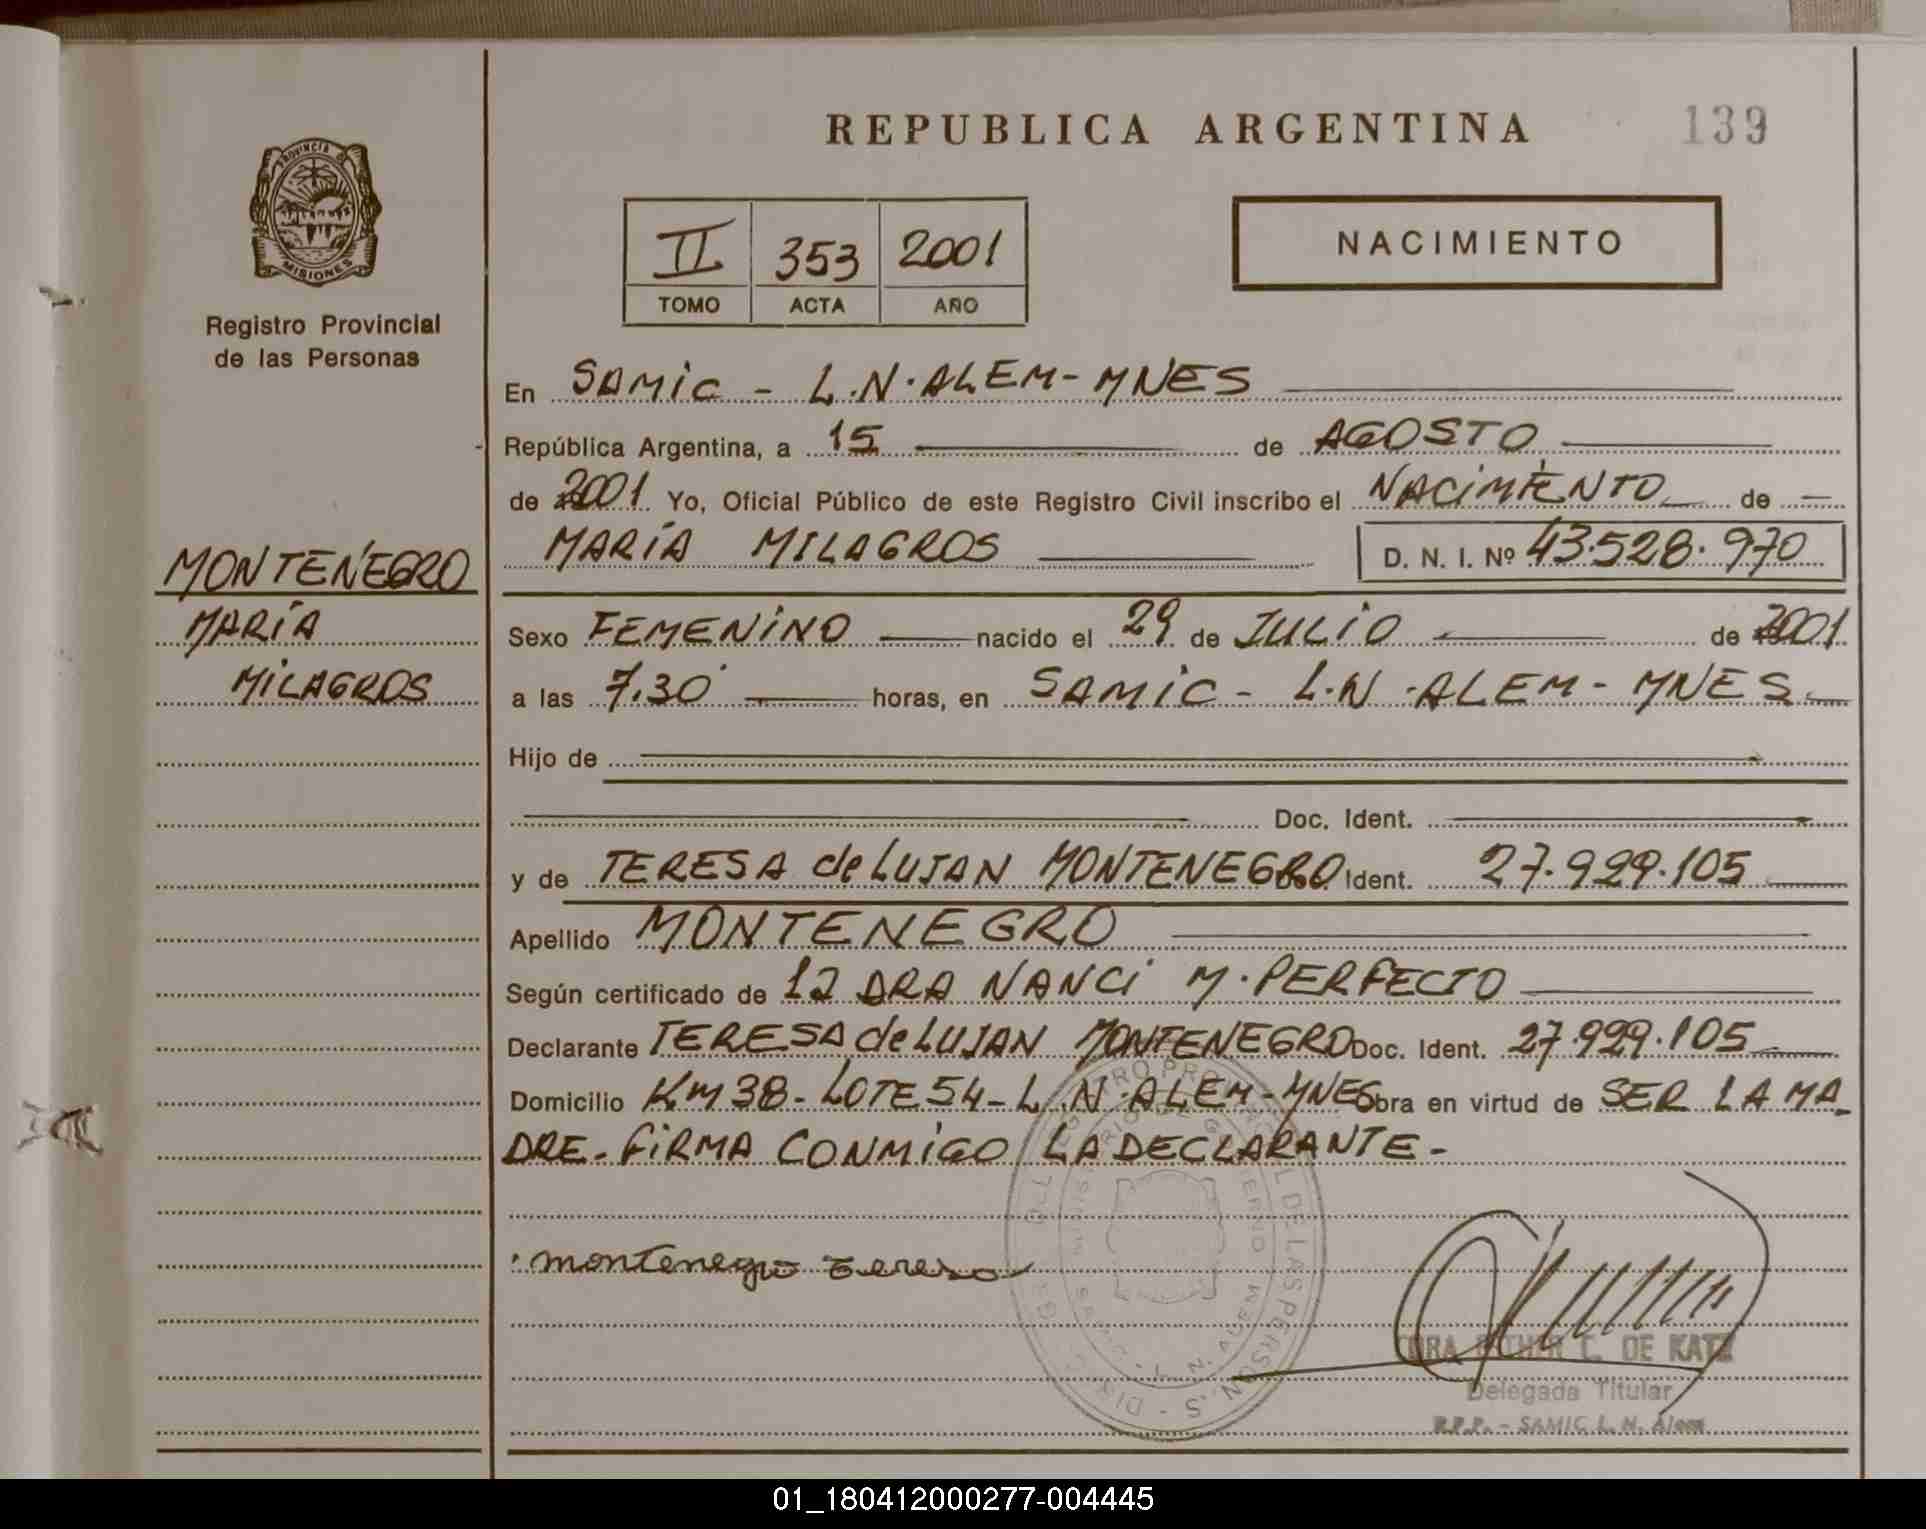 REPUBLICA ARGENTINA
139
PROVINCIA DE
MISIONES
Registro Provincial
de las Personas
II 353 2001
TOMO ACTA AÑO
NACIMIENTO
En SAMIC - L.N. ALEM - MNES
República Argentina, a 15 de AGOSTO
de 2001 Yo, Oficial Público de este Registro Civil inscribo el NACIMIENTO de
MARÍA MILAGROS D. N. I. Nº 43.528.970
MONTENEGRO
MARÍA
MILAGROS
Sexo FEMENINO nacido el 29 de JULIO de 2001
a las 7.30 horas, en SAMIC - L.N. ALEM - MNES.
Hijo de
Doc. Ident.
y de TERESA de LUJAN MONTENEGRO Doc. Ident. 27.929.105
Apellido MONTENEGRO
Según certificado de DRA NANCI M. PERFECTO
Declarante TERESA de LUJAN MONTENEGRO Doc. Ident. 27.929.105
Domicilio Km 38 - LOTE 54 - L.N. ALEM - MNES Obra en virtud de SER LA MA-
DRE. FIRMA CONMIGO LA DECLARANTE -
montenegro Teresa
C. DE KATZ
Delegada Titular
R.P.P. - SAMIC L. N. Alem
01_180412000277-004445